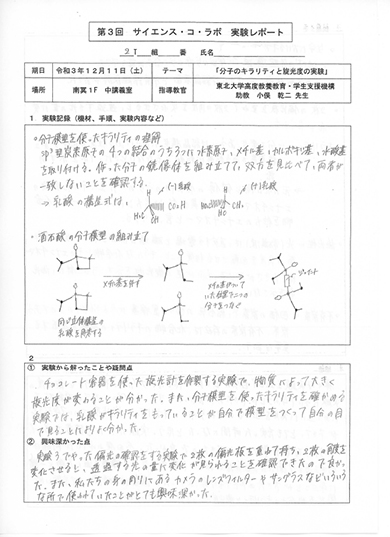 第3回 サイエンス・コ・ラボ 実験レポート
組 番 氏名
期日 令和3年12月11日(土) テーマ 「分子のキラリティと旋光度の実験」
場所 南冥1F 中講義室 指導教官 東北大学高度教養教育・学生支援機構
助教 小俣 乾二 先生
1 実験記録(機材、手順、実験内容など)
○分子模型を使ったキラリティの理解
sp³型炭素原子の4つの結合のうち3つに水素原子、メチル基、カルボキシ基、水酸基
を取り付ける。作った分子の鏡像体を組み立てて、双方を見比べて、両者が
一致しないことを確認する。
→乳酸の構造式は、
(-)乳酸
(+)乳酸
・酒石酸の分子模型の組み立て
メチル基を外す
メチル基がついて
いた位置で二つの
分子をつなぐ
ジョイント
同じ立体構造の
乳酸を用意する
2
① 実験から解ったことや疑問点
チョコレート容器を使った旋光計を作製する実験で、物質によって大きく
旋光度が変わることが分かった。また、分子模型を使ったキラリティを確かめる
実験では、乳酸がキラリティをもっていることが自分で模型をつくって自分の目
で見ることによりよく分かった。
② 興味深かった点
実験3でやった偏光の確認をする実験で2枚の偏光板を重ねて持ち、2枚の角度を
変化させると、透過する光の量に変化が見られることを確認できたので良かっ
た。また、私たちの身の周りにあるカメラのレンズフィルターやサングラスなどいろいろ
な所で使われていたことがとても興味深かった。